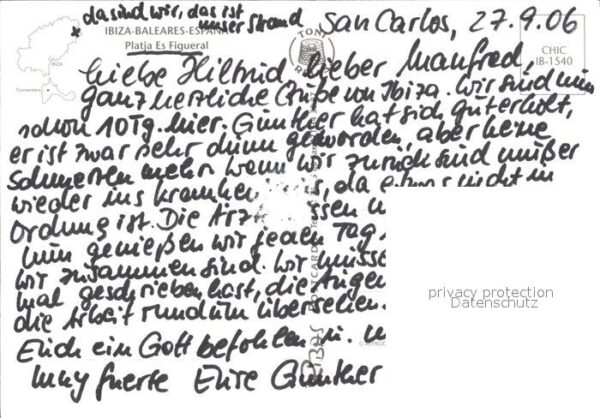 da sind wir, das ist
unser Strand
San Carlos, 27.9.06
IBIZA-BALEARES-ESPAÑA
Platja Es Figueral
IBIZA
Formentera
TONI
CHIC
IB-1540
Liebe Hiltrud, lieber Manfred,
ganz herzliche Grüße von Ibiza. Wir sind nun
schon 10 Tg. hier. Günther hat sich gut erholt,
er ist zwar sehr dünn geworden, aber keine
Schmerzen mehr. Wenn wir zurück sind muß er
wieder ins Kranken, da etwas nicht in
Ordnung ist. Die Ärzt ssen
Nun genießen wir jeden Tag,
wir zusammen sind. Wir müsse
mal geschrieben hast, die Augen
die Arbeit rundum übersehen.
Euch ein Gott befohlen
Muy fuerte Eure Günther
POSTCARD
privacy protection
Datenschutz